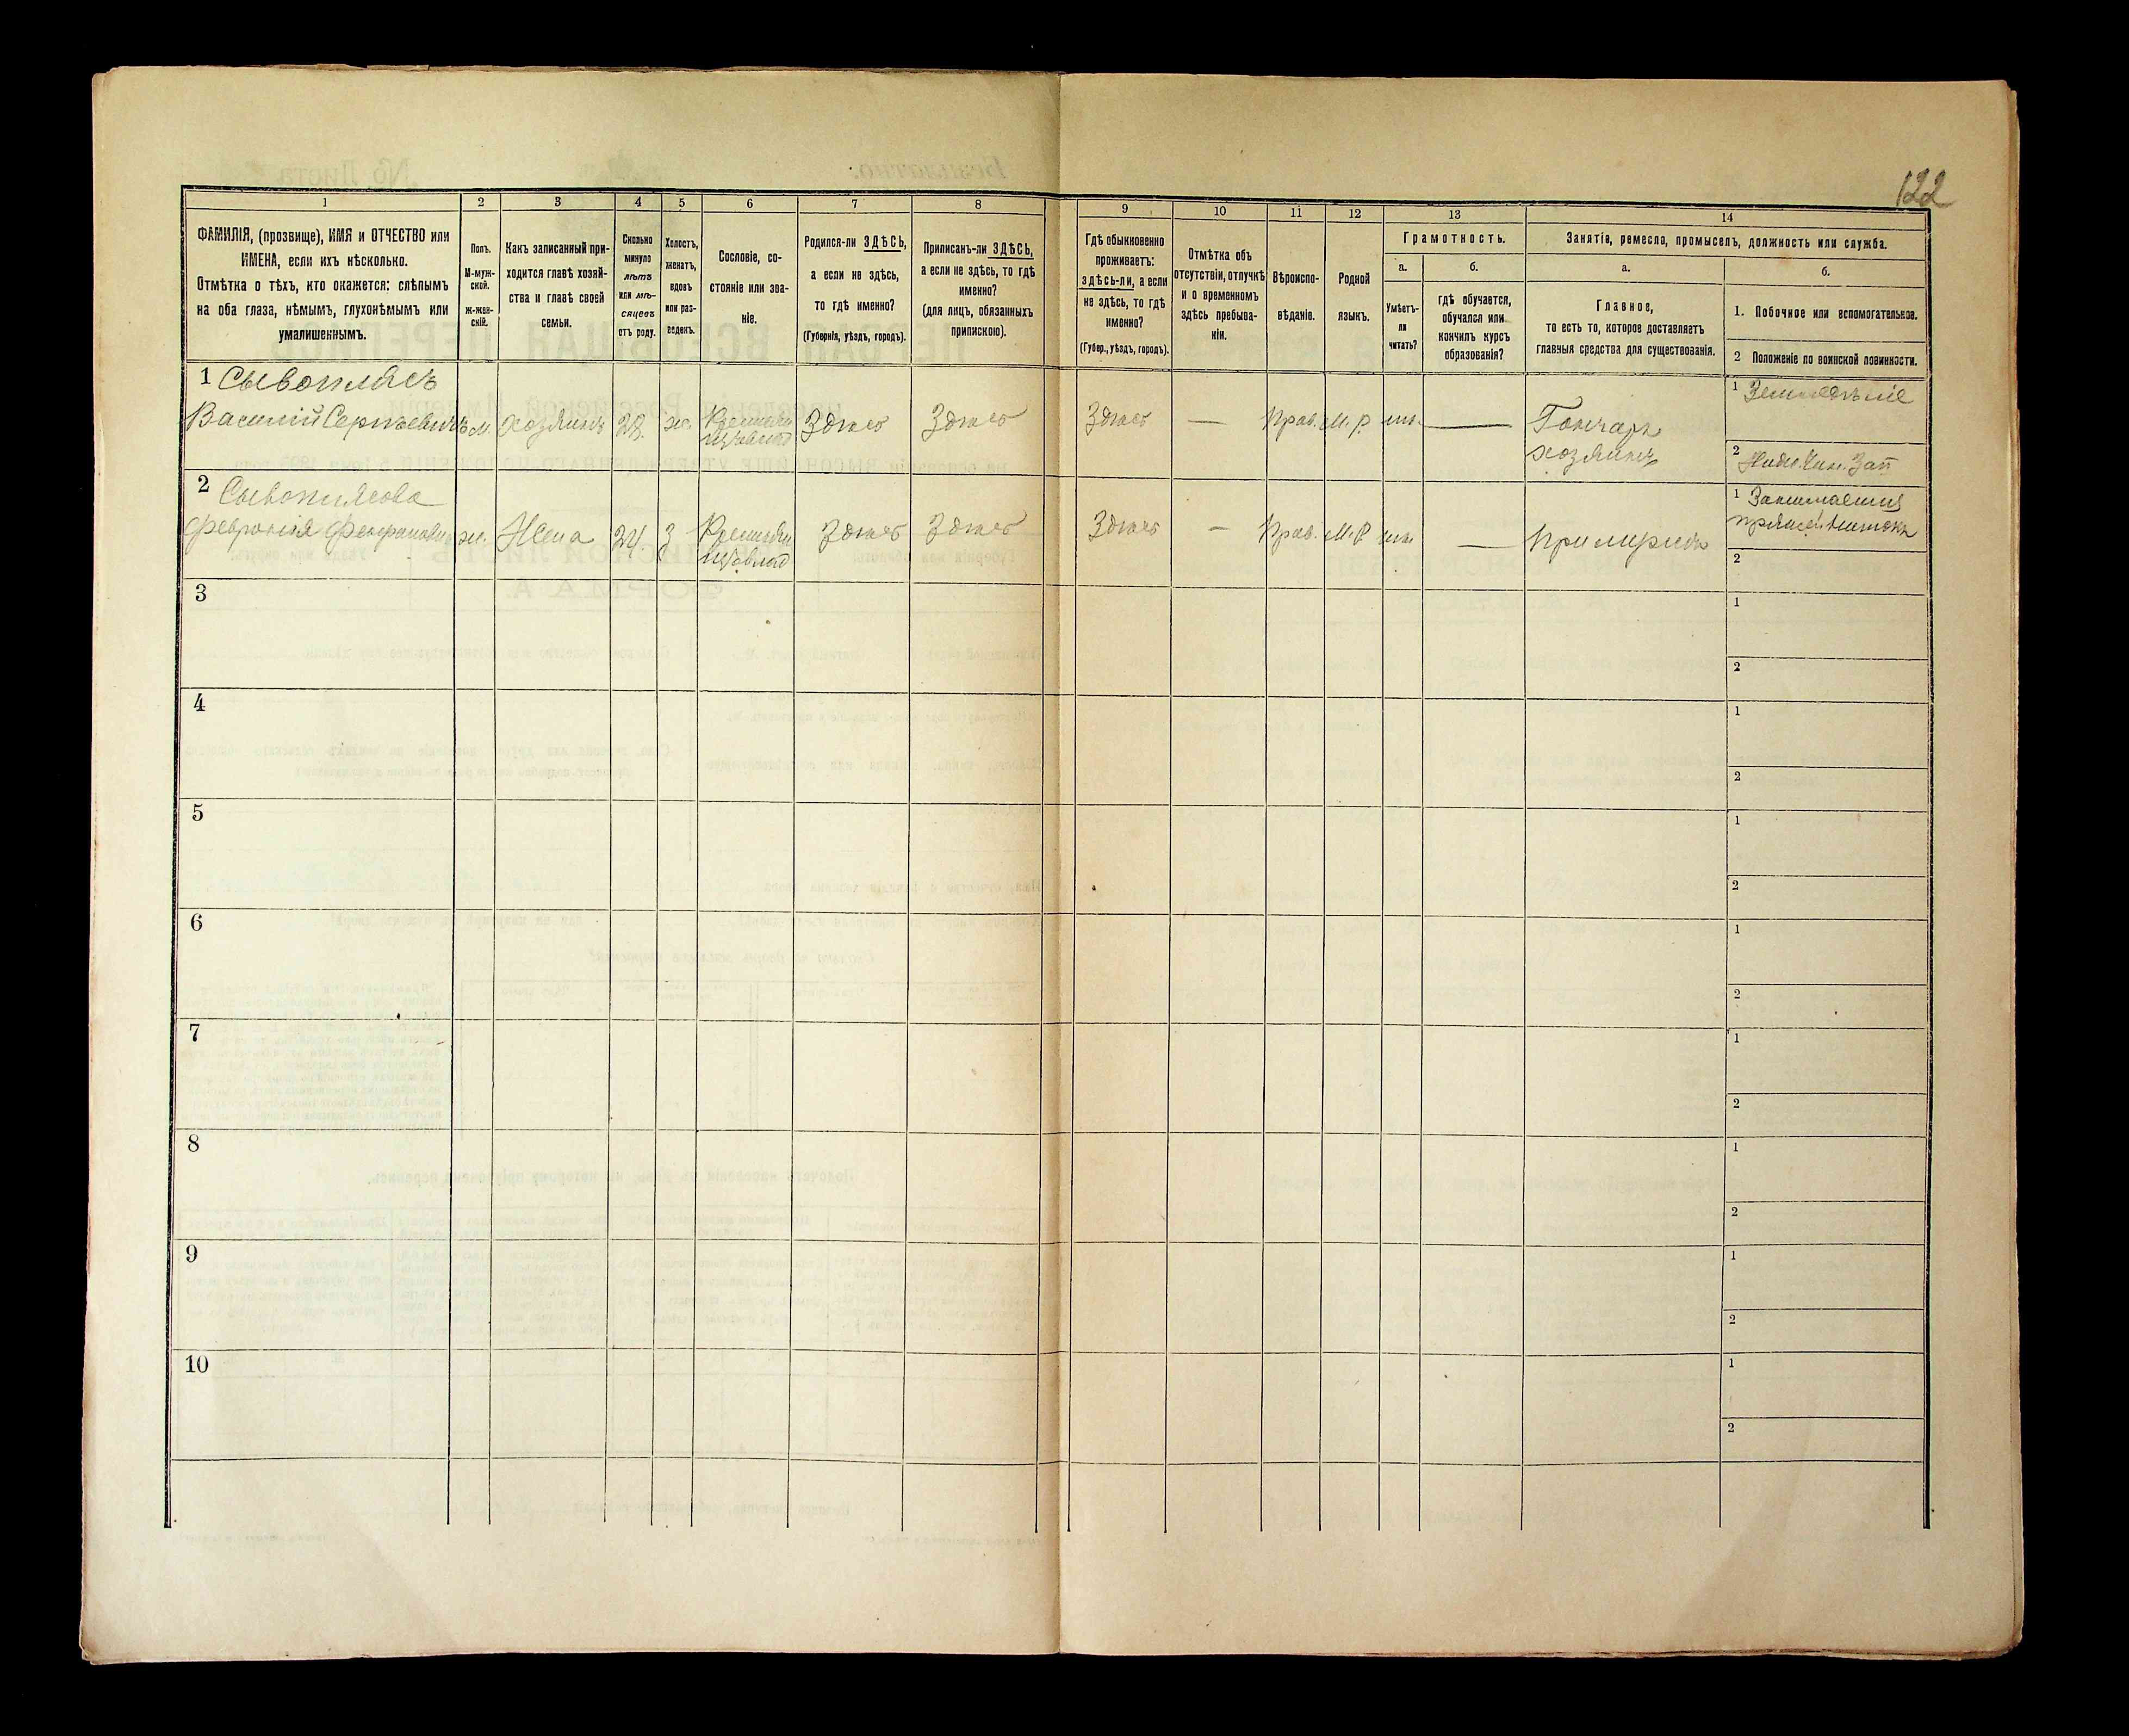 122
1
2
3
4
5
6
7
8
9
10
11
12
13
14
ФАМИЛІЯ, (прозвище), ИМЯ и ОТЧЕСТВО или
ИМЕНА, если ихъ нѣсколько.
Отмѣтка о тѣхъ, кто окажется: слѣпымъ
на оба глаза, нѣмымъ, глухонѣмымъ или
умалишеннымъ.
Полъ.
М-муж-
ской.
ж-жен-
скій.
Какъ записанный при-
ходится главѣ хозяй-
ства и главѣ своей
семьи.
Сколько
минуло
лѣтъ
или мѣ-
сяцевъ
отъ роду.
Холостъ,
женатъ,
вдовъ
или раз-
веденъ.
Сословіе, со-
стояніе или зва-
ніе.
Родился-ли ЗДѢСЬ,
а если не здѣсь,
то гдѣ именно?
(Губернія, уѣздъ, городъ).
Приписанъ-ли ЗДѢСЬ,
а если не здѣсь, то гдѣ
именно?
(для лицъ, обязанныхъ
припискою).
Гдѣ обыкновенно
проживаетъ:
здѣсь-ли, а если
не здѣсь, то гдѣ
именно?
(Губер., уѣздъ, городъ).
Отмѣтка объ
отсутствіи, отлучкѣ
и о временномъ
здѣсь пребыва-
ніи.
Вѣроиспо-
вѣданіе.
Родной
языкъ.
Грамотность.
а.
Умѣетъ-
ли
читать?
б.
гдѣ обучается,
обучался или
кончилъ курсъ
образованія?
Занятіе, ремесло, промыселъ, должность или служба.
а.
Главное,
то есть то, которое доставляетъ
главныя средства для существованія.
б.
1. Побочное или вспомогательное.
2 Положеніе по воинской повинности.
1 Сывопласъ
Василій Сергѣевичъ м. хозяинъ 28. ж. Здѣсь Здѣсь Здѣсь — Прав. М. Р. —
Гончаръ
хозяинъ
1 Земледѣліе
2 Ниж. Чин. Зап
2
Февронія ж. Жена 24 З Здѣсь Здѣсь Здѣсь — Прав. М. Р —
1
2
3
1
2
4
1
2
5
1
2
6
1
2
7
1
2
8
1
2
9
1
2
10
1
2